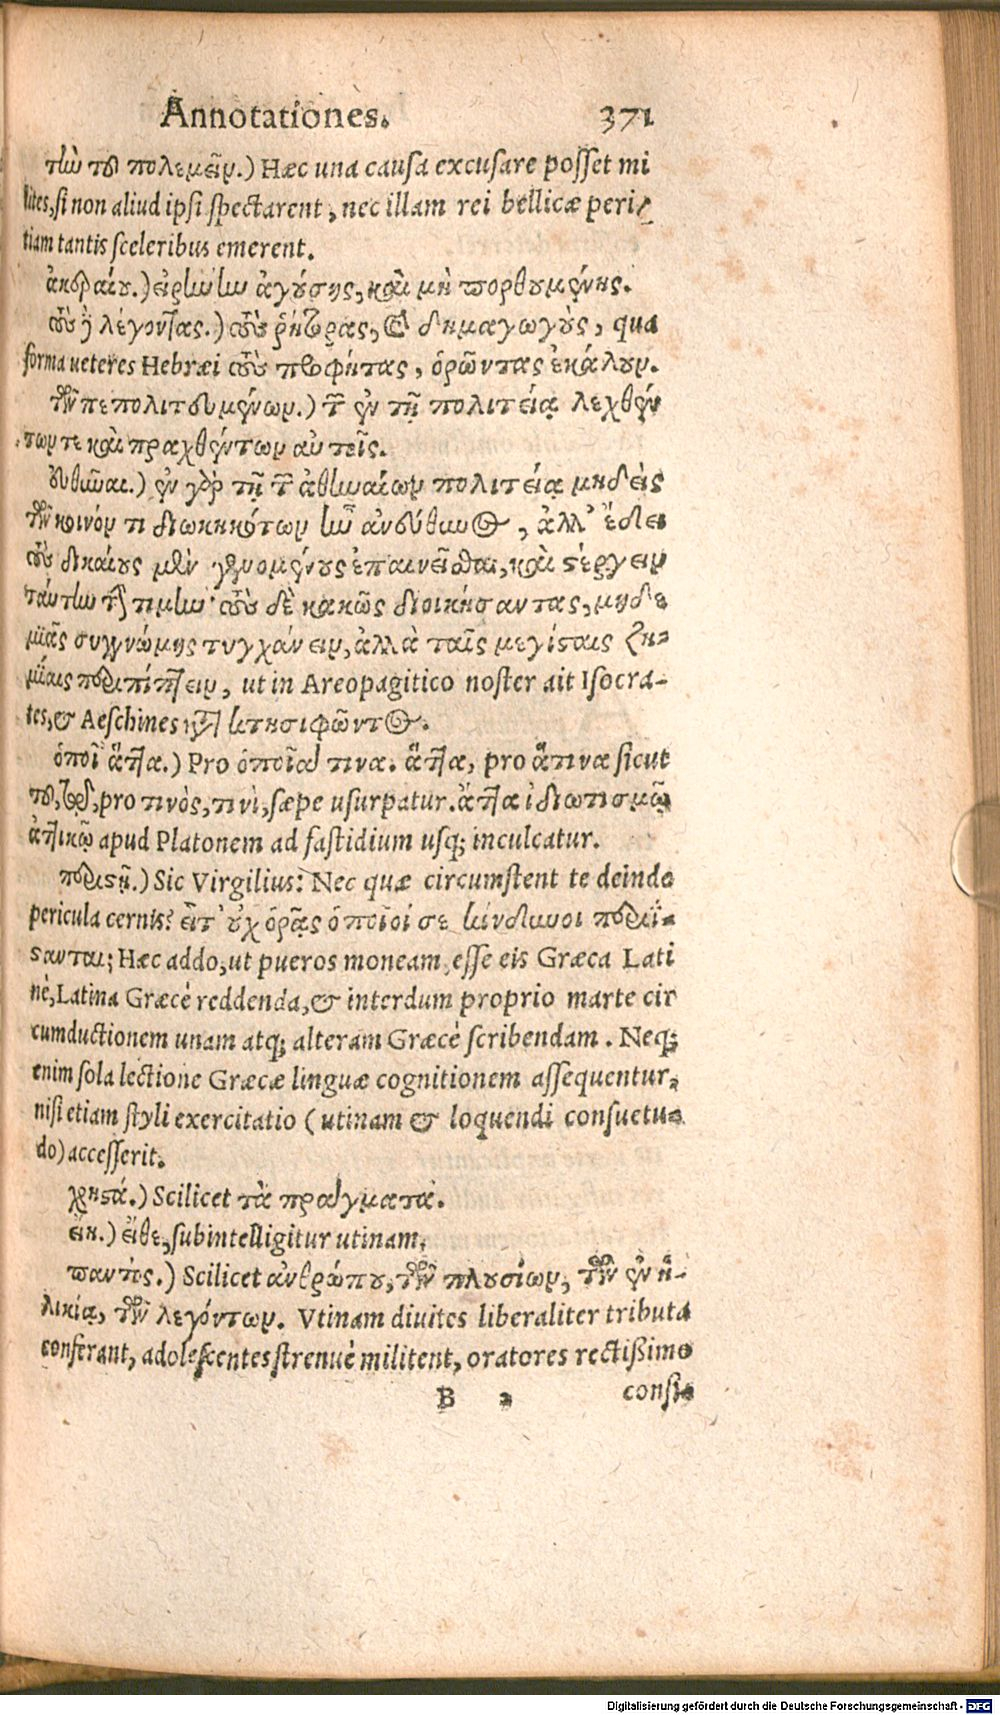 Annotationes. 371
τὴν τοῦ πολεμεῖν.) Hæc una causa excusare posset mi
lites, si non aliud ipsi spectarent, nec illam rei bellicæ peri-
tiam tantis sceleribus emerent.
ἀκεραίου.) εἰρήνην ἀγούσης, καὶ μὴ πορθουμένης.
τοὺς λέγοντας.) τοὺς ῥήτορας, καὶ δημαγωγοὺς, qua
forma ueteres Hebræi τοὺς προφήτας, ὁρῶντας ἐκάλουν.
τῶν πεπολιτευμένων.) τῶν ἐν τῇ πολιτείᾳ λεχθέν
των τε καὶ πραχθέντων αὐτοῖς.
εὐθῦναι.) ἐν γὰρ τῇ τῶν ἀθηναίων πολιτείᾳ μηδεὶς
τῶν κοινόν τι διῳκηκότων ἦν ἀνεύθυνος, ἀλλ' ἔδει
τοὺς δικαίους μὲν γενομένους ἐπαινεῖσθαι, καὶ στέργειν
ταύτην τὴν τιμήν· τοὺς δὲ κακῶς διοικήσαντας, μηδε-
μιᾶς συγγνώμης τυγχάνειν, ἀλλὰ ταῖς μεγίσταις ζη-
μίαις περιπίπτειν, ut in Areopagitico noster ait Isocra-
tes, & Aeschines κατὰ κτησιφῶντος.
ὁποῖ' ἄττα.) Pro ὁποῖα τινα. ἄττα, pro ἅτινα sicut
του, τῳ, pro τινὸς, τινὶ, sæpe usurpatur. ἄττα ἰδιωτισμῷ
ἀττικῷ apud Platonem ad fastidium usq; inculcatur.
περιέστη.) Sic Virgilius: Nec quæ circumstent te deinde
pericula cernis? εἶτ' οὐχ ὁρᾷς ὁποῖοί σε κίνδυνοι περιΐ-
στανται; Hæc addo, ut pueros moneam, esse eis Græca Lati
nè, Latina Græcè reddenda, & interdum proprio marte cir
cumductionem unam atq; alteram Græcè scribendam. Neq;
enim sola lectione Græcæ linguæ cognitionem assequentur,
nisi etiam styli exercitatio (utinam & loquendi consuetu-
do) accesserit.
χρηστά.) Scilicet τὰ πράγματα.
εἴη.) εἴθε, subintelligitur utinam,
παντὸς.) Scilicet ἀνθρώπου, τῶν πλουσίων, τῶν ἐν ἡ-
λικίᾳ, τῶν λεγόντων. Vtinam diuites liberaliter tributa
conferant, adolescentes strenuè militent, oratores rectißimo
B 2 consi-
Digitalisierung gefördert durch die Deutsche Forschungsgemeinschaft - DFG